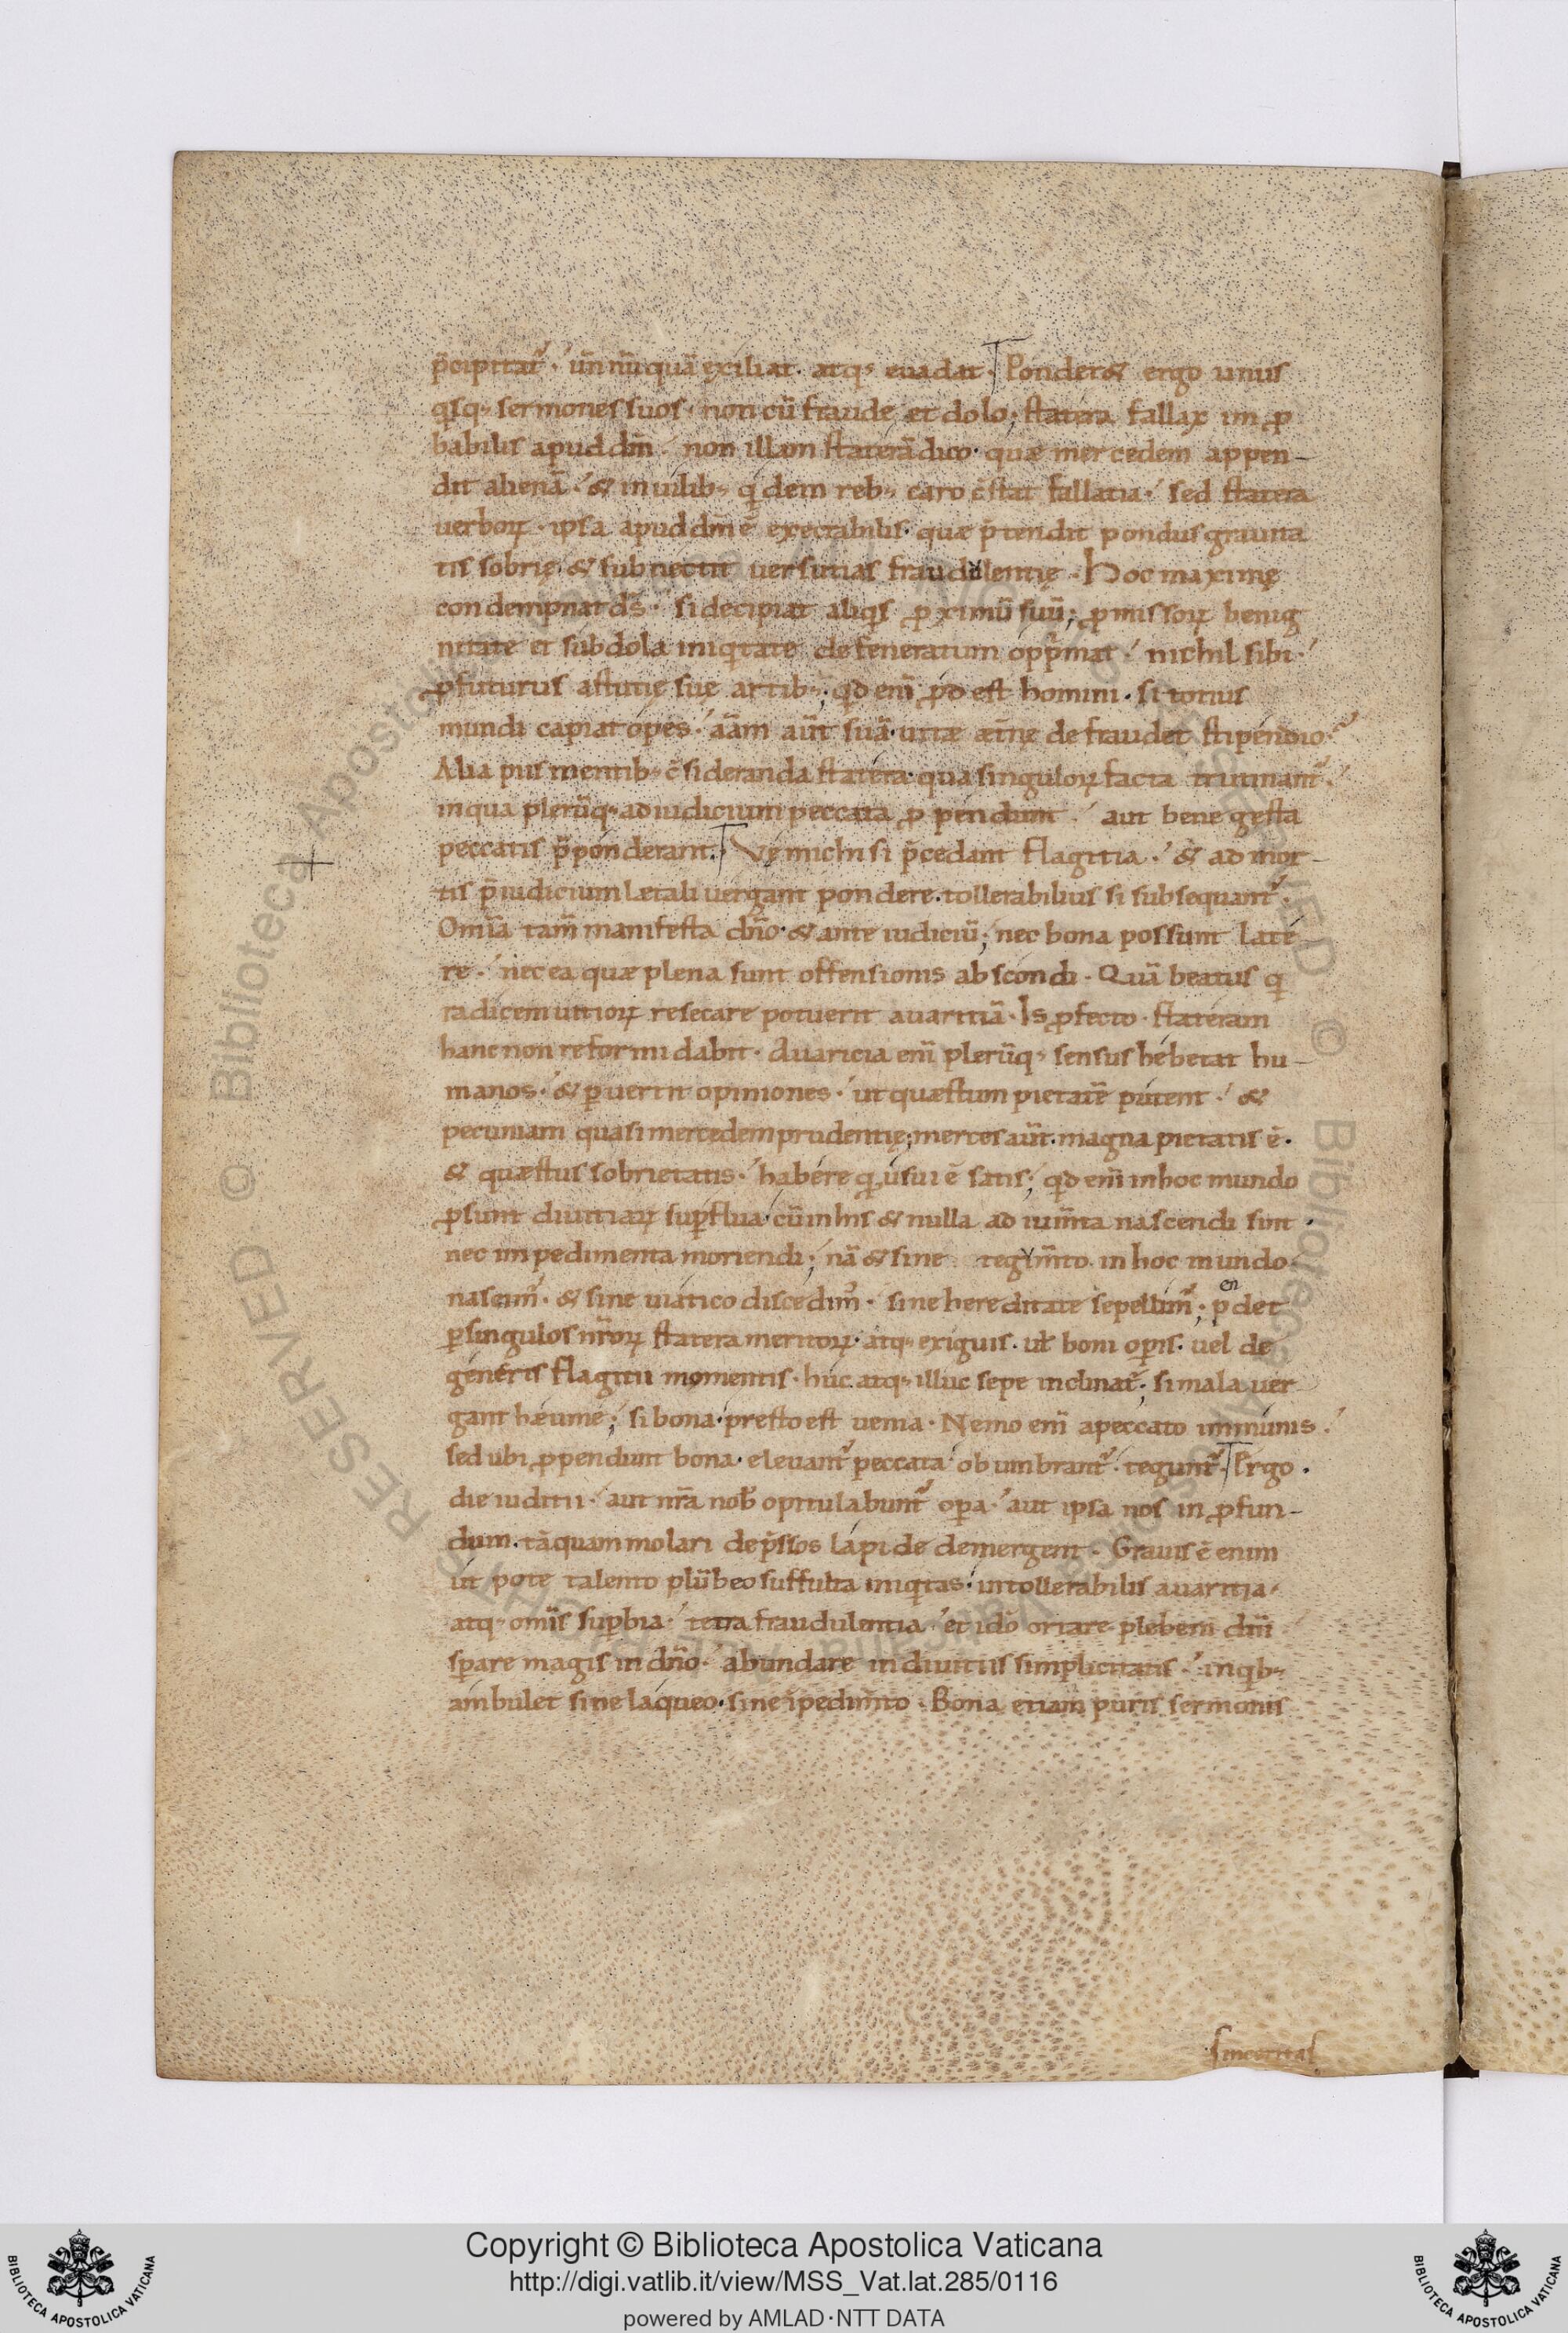 p̄cipitat᷑· un̄ nū quā exiliat· atq; euadat· Ponder& ergo unus
qsq; sermones suos· non cū fraude et dolo; statera fallax im ꝓ
babilis apud dm̄· non illam staterā dico· quæ mercedem appen-
dit alienā· & in uilib; qdem reb; caro c̄stat fallatia· sed statera
uerboꝝ· ipsa apud dm̄ ē execrabilis· quæ p̄tendit pondus grauita
tis sobrię· & subnectit uersutias fraudulentię· Hoc maximę
condempnat ds̄· si decipiat aliqs ꝓximū suū; ꝓmissoꝝ benig
nitate et subdola iniqtate defeneratum opp̄mat· nichil sibi·
ꝓfuturus astutię suę artib;; qd em̄ ꝓd est homini· si totius
mundi capiat opes· aām aūt suā uitæ æt̄nę defraudet stipendio·
Alia pus mentib; c̄sideranda statera· qua singuloꝝ facta trutinant᷑·
in qua plerūq; ad iudicium peccata ꝓpendunt· aut bene gesta
peccatis p̄ponderant· Vę michi si p̄cedant flagitia· & ad mor-
tis p̄iudicium lætali uergant pondere· tollerabilius si subsequant᷑·
Om̄ia tam̄ manifesta dn̄o· & ante iudiciū; nec bona possunt late
re· nec ea quæ plena sunt offensionis abscondi· Quā beatus q
radicem uitioꝝ resecare potuerit auaritiā· Is ꝓfecto· stateram
hanc non reformidabit· Auaricia em̄ plerūq; sensus hebetat hu-
manos· & ꝑuertit opiniones· ut quæstum pietatē putent· &
pecuniam quasi mercedem prudentię; merces aūt· magna pietatis ē·
& quæstus sobrietatis· habere q usui ē satis; qd em̄ in hoc mundo
ꝓsunt diuitiaꝝ suꝑflua· cū in his & nulla ad ium̄ta nascendi sint·
nec impedimenta moriendi; nā & sine tegym̄to in hoc mundo
nascim᷑· & sine uiatico discedim᷑· sine hereditate sepelim᷑; p det
en
ꝑ singulos nr̄oꝝ statera meritoꝝ· atq; exiguis· uł boni oꝑis· uel de
generis flagitii momentis· huc atq; illuc sepe inclinat᷑; si mala uer
gant hæu me; si bona· presto est uenia· Nemo em̄ a peccato immunis·
sed ubi ꝓpendunt bona· eleuant᷑ peccata· obumbrant᷑· tegunt᷑· Ergo·
die iuditii· aut nr̄a nob̄ opitulabunt᷑ oꝑa· aut ipsa nos in ꝓfun-
dum· tāquam molari dep̄ssos lapide demergent· Grauis ē enim
ut pote talento plūbeo suffulta iniqtas· intollerabilis auaritia·
atq; omīs suꝑbia· tetra fraudulentia· et idō ortare plebem dn̄i
sꝑare magis in dn̄o· abundare in diuitiis simplicitatis· in qb;
ambulet sine laqueo· sine īpedim̄to· Bona etiam puris sermonis
sinceritas
Copyright © Biblioteca Apostolica Vaticana
http://digi.vatlib.it/view/MSS_Vat.lat.285/0116
powered by AMLAD·NTT DATA
BIBLIOTECA APOSTOLICA VATICANA
BIBLIOTECA APOSTOLICA VATICANA